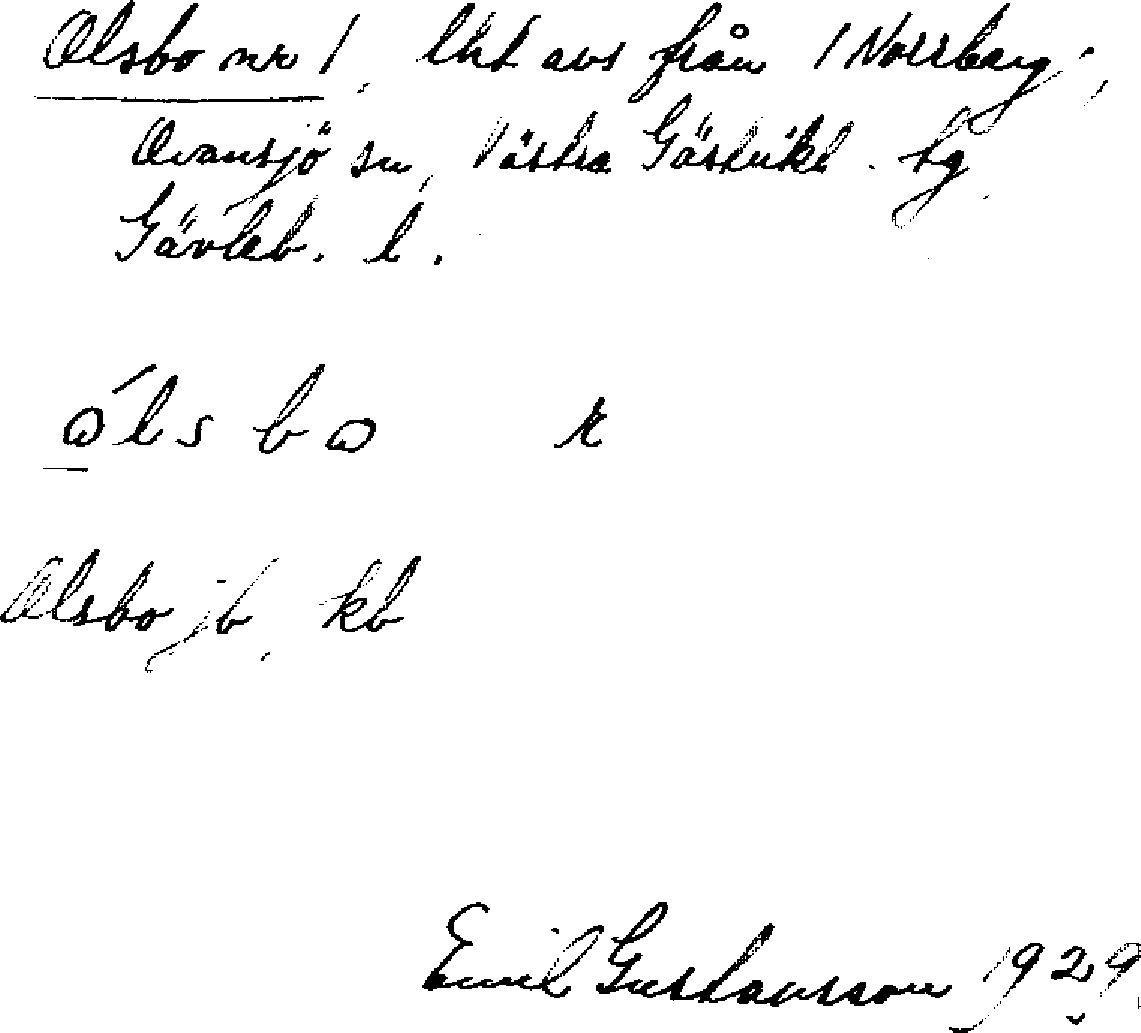 Olsbo nr 1, lht avs från 1 Norrberg,
Ovansjö sn, Västra Gästrikl. tg
Gävleb. l.
ólsbo
Olsbo jb, kb
Emil Gustavsson 1929.